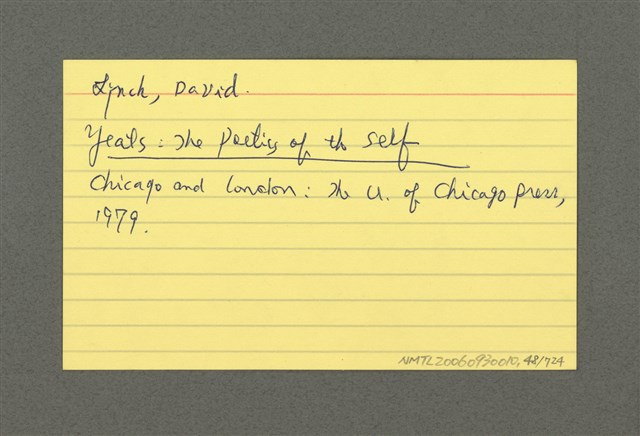 Lynch, David.
Yeats: The Poetics of the Self
Chicago and London: The U. of Chicago press,
1979.
NMTL20060930010, 48/724